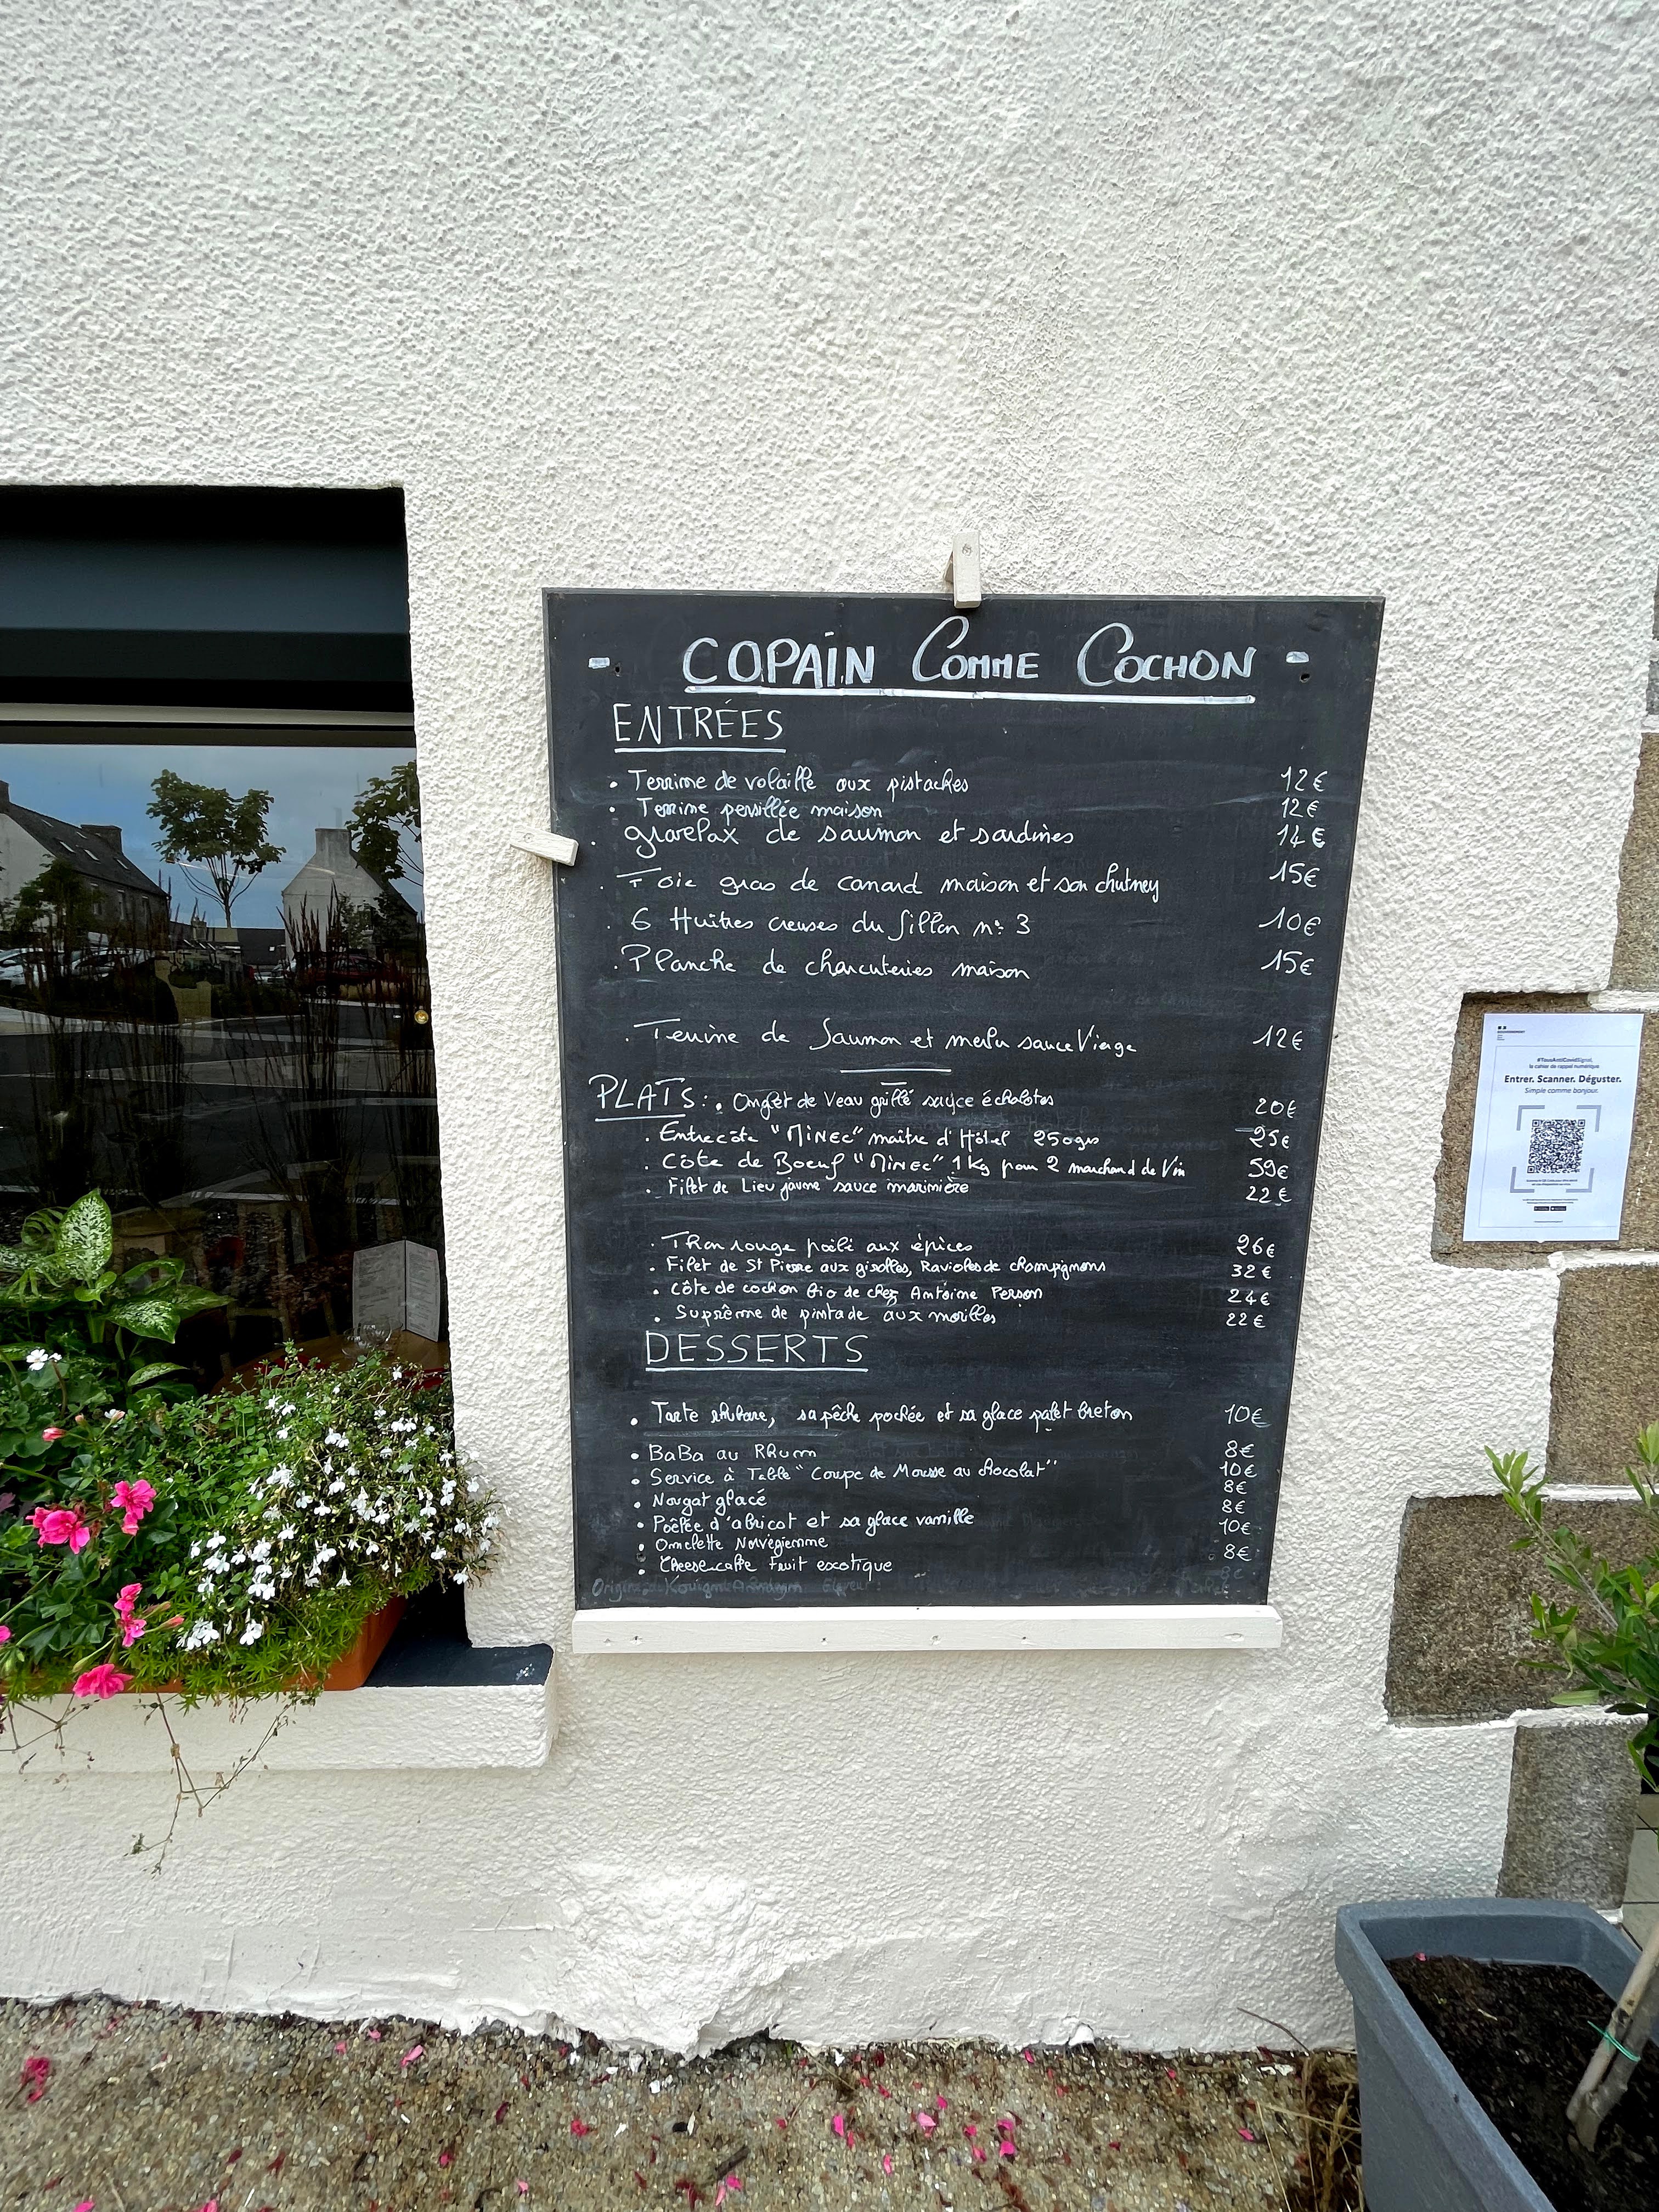 - COPAIN COMME COCHON -
ENTRÉES
• Terrine de volaille aux pistaches 12€
• Terrine persillée maison 12€
• gravelax de saumon et sardines 14€
• Foie gras de canard maison et son chutney 15€
• 6 Huîtres creuses du Sillon n°3 10€
• Planche de charcuteries maison 15€
• Terrine de Saumon et merlu sauce Vierge 12€
PLATS: • Onglet de Veau grillé sauce échalotes 20€
• Entrecôte "MiNEC" maître d'Hôtel 250grs 25€
• Côte de Boeuf "MiNEC" 1Kg pour 2 marchand de Vin 59€
• Filet de Lieu jaune sauce marinière 22€
• Thon rouge poêlé aux épices 26€
• Filet de St Pierre aux girolles, Ravioles de champignons 32€
• Côte de cochon bio de chez Antoine Person 24€
• Suprême de pintade aux morilles 22€
DESSERTS
• Tarte rhubare, sa pêche pochée et sa glace palet breton 10€
• BaBa au Rhum 8€
• Service à Table "Coupe de Mousse au chocolat" 10€
• Nougat glacé 8€
• Poêlée d'abricot et sa glace vanille 8€
• Omelette Norvégienne 10€
• Cheese-cake Fruit exotique 8€
#TousAntiCovidSignal,
le cahier de rappel numérique
Entrer. Scanner. Déguster.
Simple comme bonjour.